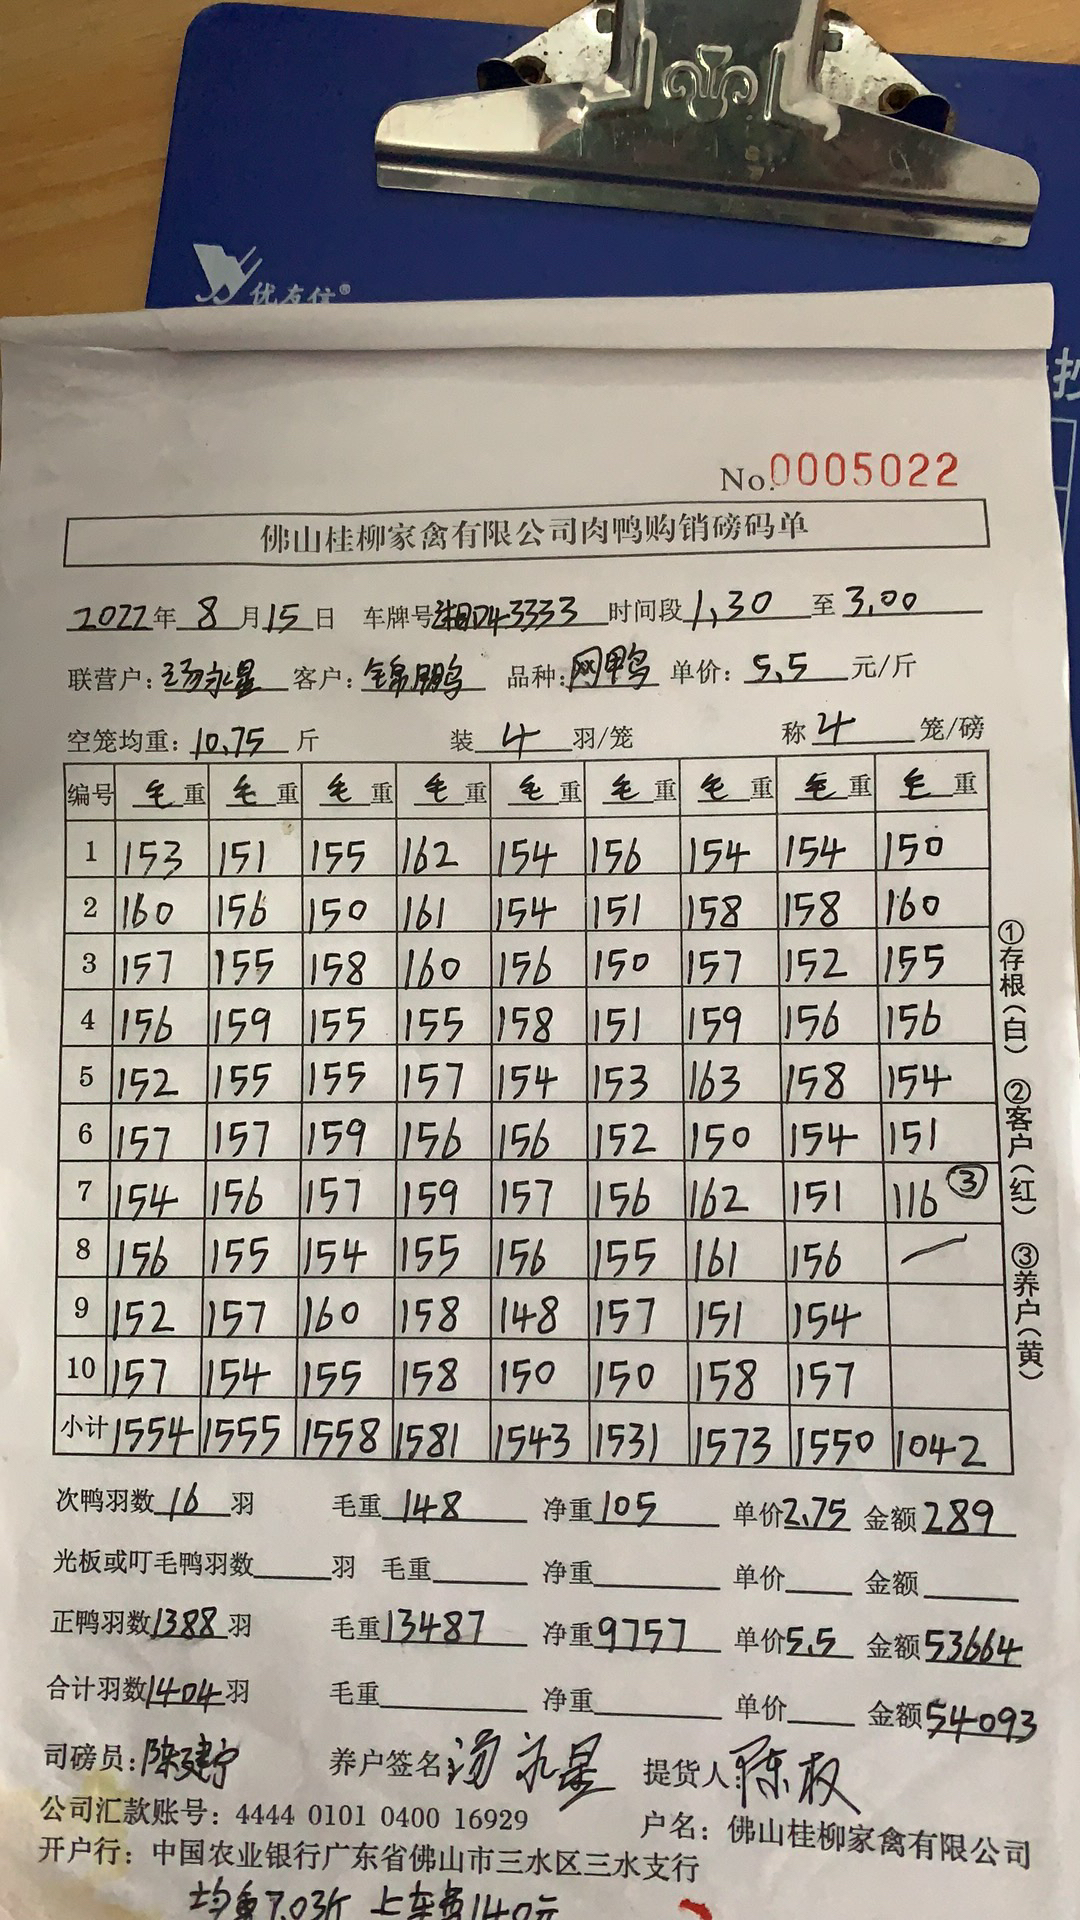 优有信®
抄
No.0005022
佛山桂柳家禽有限公司肉鸭购销磅码单
2022年 8月15日 车牌号湘D43333 时间段1,30至3,00
联营户:汤永星 客户:锦鹏 品种:网鸭 单价:5.5元/斤
空笼均重:10.75斤 装4羽/笼 称4笼/磅
编号 毛重 毛重 毛重 毛重 毛重 毛重 毛重 毛重 毛重
1 153 151 155 162 154 156 154 154 150
2 160 156 150 161 154 151 158 158 160
3 157 155 158 160 156 150 157 152 155
4 156 159 155 155 158 151 159 156 156
5 152 155 155 157 154 153 163 158 154
6 157 157 159 156 156 152 150 154 151
7 154 156 157 159 157 156 162 151 116 ③
8 156 155 154 155 156 155 161 156
9 152 157 160 158 148 157 151 154
10 157 154 155 158 150 150 158 157
小计 1554 1555 1558 1581 1543 1531 1573 1550 1042
①存根(白) ②客户(红) ③养户(黄)
次鸭羽数16羽 毛重148 净重105 单价2.75 金额289
光板或叮毛鸭羽数 羽 毛重 净重 单价 金额
正鸭羽数1388羽 毛重13487 净重9757 单价5.5 金额53664
合计羽数1404羽 毛重 净重 单价 金额54093
司磅员:陈建宁 养户签名汤永星 提货人:陈权
公司汇款账号:4444 0101 0400 16929 户名:佛山桂柳家禽有限公司
开户行:中国农业银行广东省佛山市三水区三水支行
均重7.03斤 上车费140元